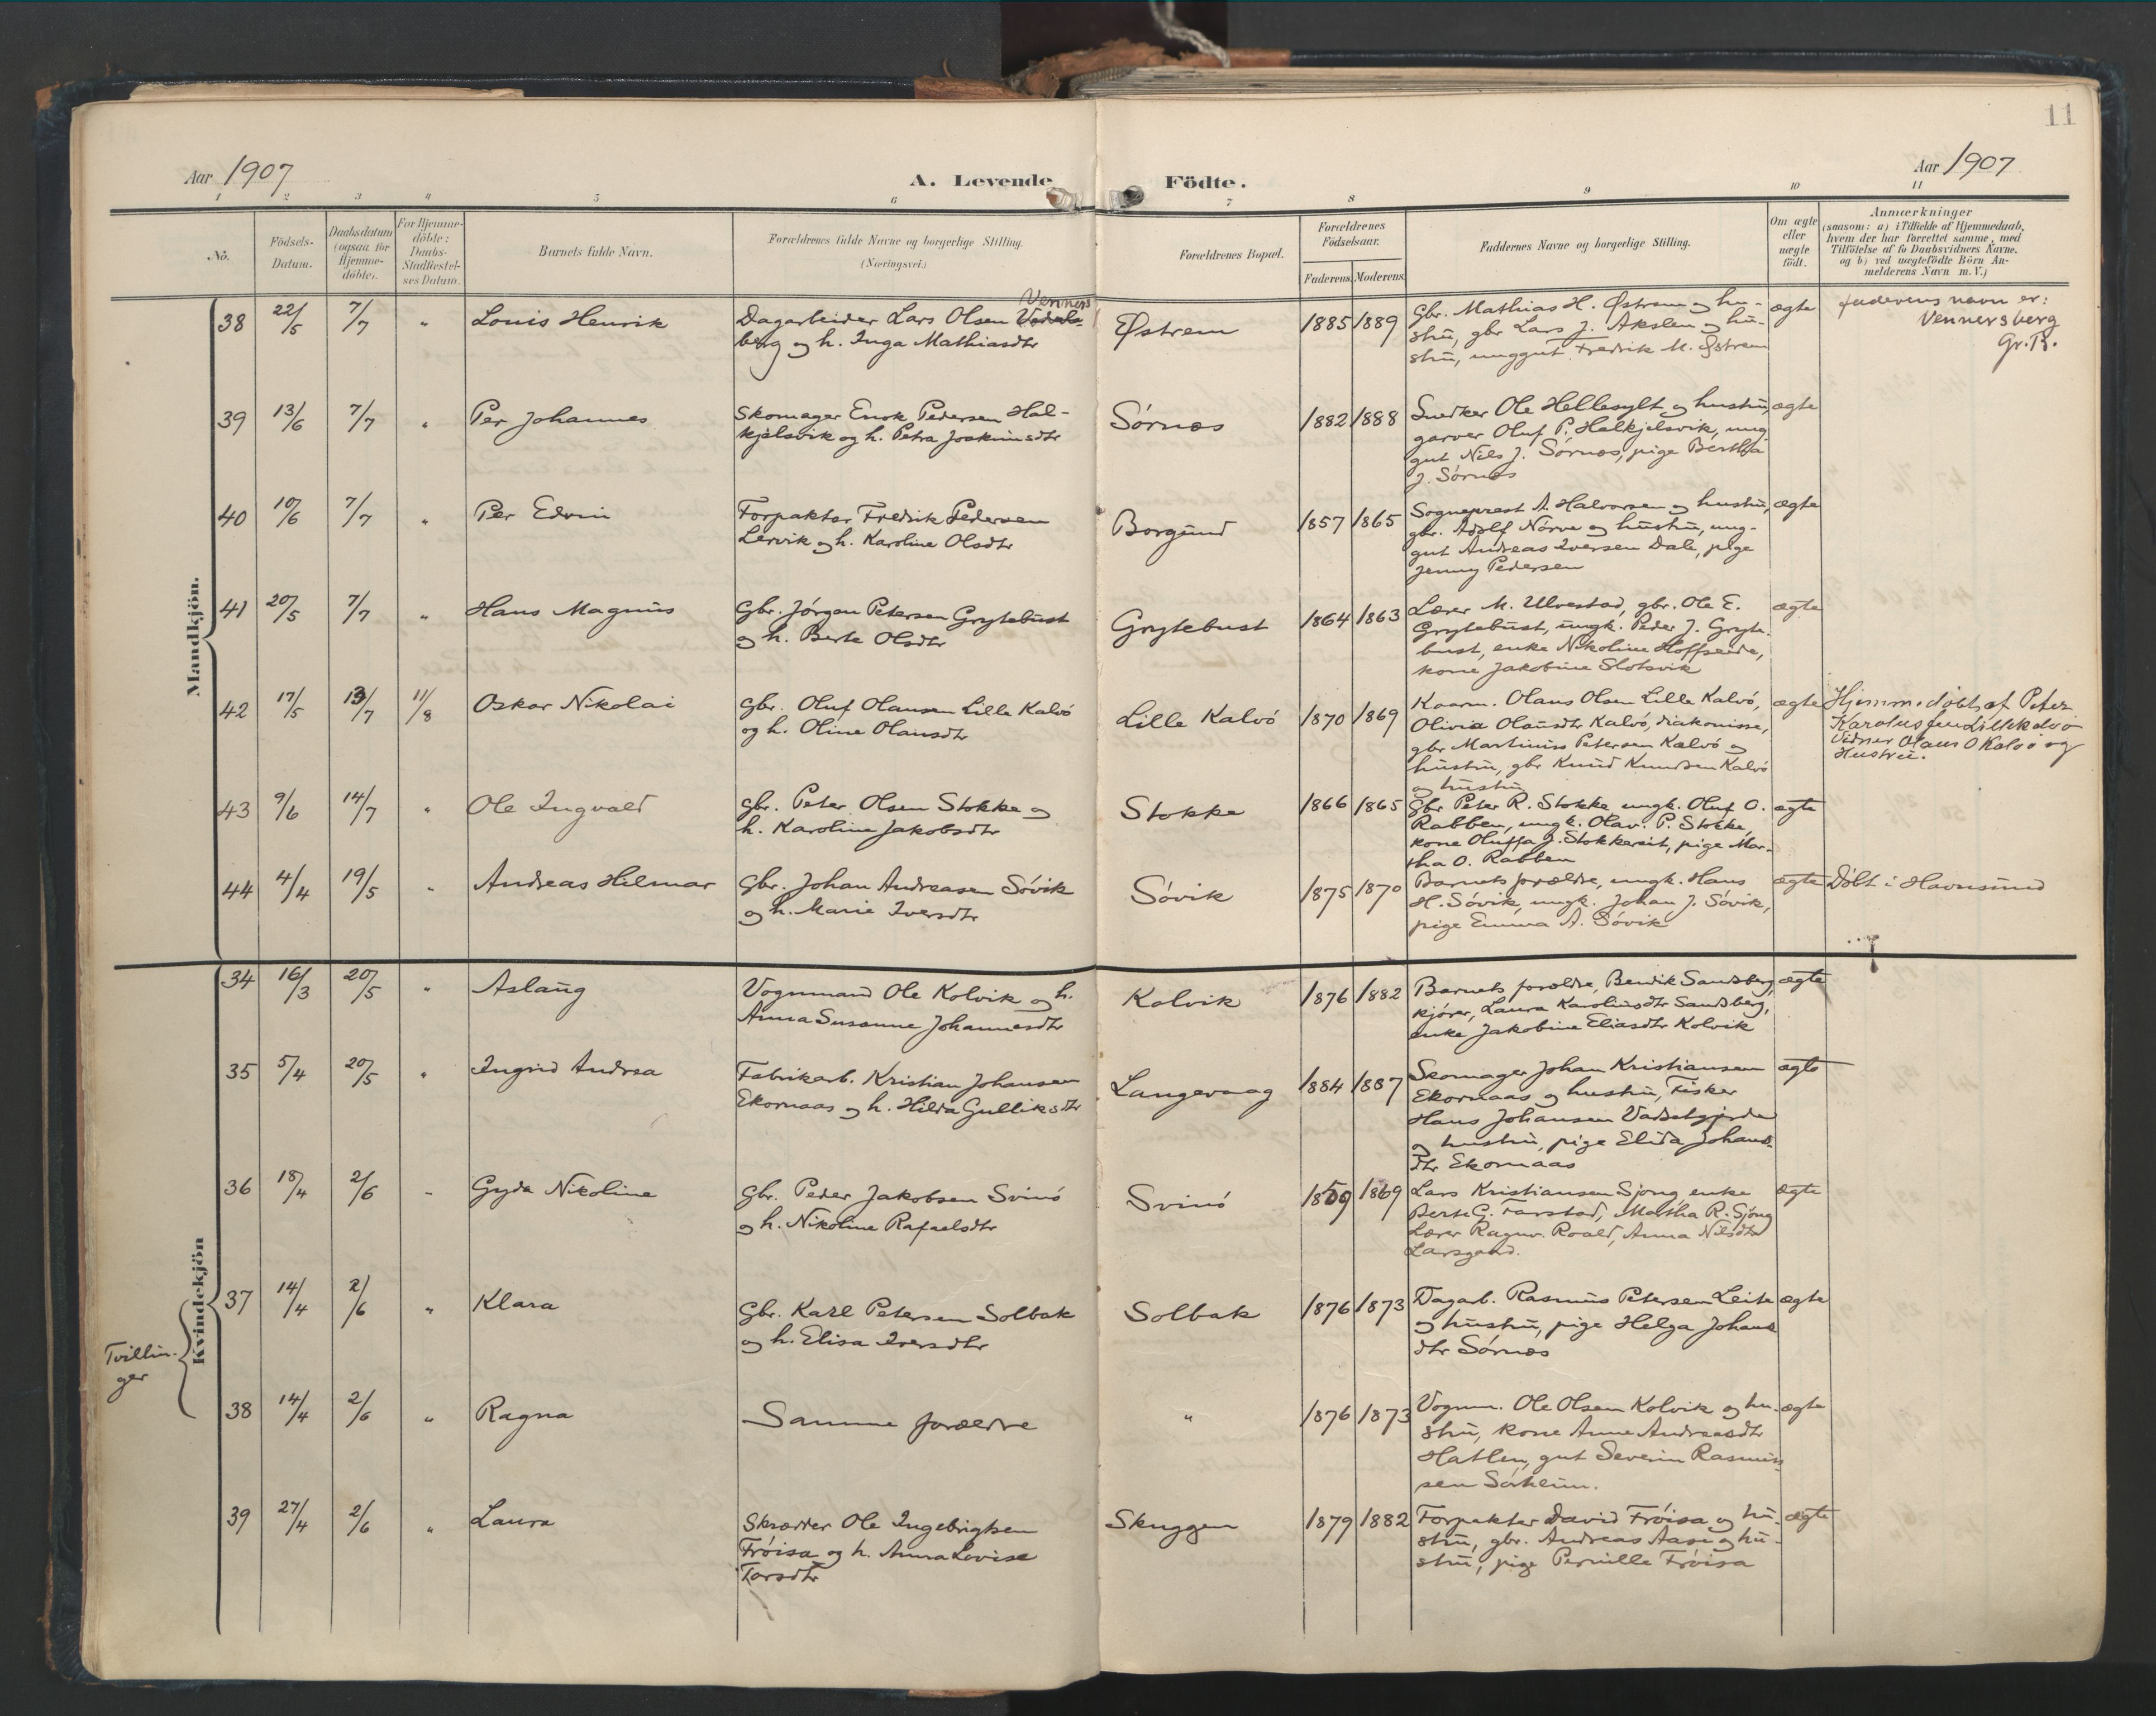 11
Aar 1907
A. Levende Födte.
Aar 1907
1 2 3 4 5 6 7 8 9 10 11
No.
Födsels-Datum.
Daabsdatum (ogsaa for Hjemme-döbte).
For Hjemme-döbte: Daabs-Stadfæstel-ses Datum.
Barnets fulde Navn.
Forældrenes fulde Navne og borgerlige Stilling.
(Næringsvei.)
Forældrenes Bopæl.
Forældrenes Födselsaar.
Faderens. Moderens.
Faddernes Navne og borgerlige Stilling.
Om ægte eller uægte födt.
Anmærkninger
(saasom: a) i Tilfælde af Hjemmedaab,
hvem der har forrettet samme, med
Tilföielse af to Daabsvidners Navne,
og b) ved uægtefödte Börn An-
melderens Navn m. V.)
Mandkjön.
38 22/5 7/7 " Louis Henrik
Dagarbeider Lars Olsen Venners
berg og h. Inga Mathiasdtr
Østrem
1885 1889
Gbr. Mathias H. Østrem og hu-
stru, gbr Lars J. Akslen og hu-
stru, unggut Fredrik M. Østrem
ægte
faderens navn er:
Vennersberg
Gr. R.
39 13/6 7/7 " Per Johannes
Skomager Enok Pedersen Hal-
kjelsvik og h. Petra Joakimsdtr
Sørnes
1882 1888
Snedker Ole Hellesylt og hustru,
garver Oluf P. Halkjelsvik, ung-
gut Nils J. Sørnes, pige Bertha
J. Sørnes
ægte
40 10/6 7/7 " Per Edvin
Forpakter Fredrik Pedersen
Lervik og h. Karoline Olsdtr
Borgund
1857 1865
Sogneprest A. Halvorsen og hustru,
gbr. Adolf Nørve og hustru, ung-
gut Andreas Iversen Dale, pige
Jenny Pedersen
ægte
41 20/5 7/7 " Hans Magnus
Gbr. Jørgen Petersen Grytebust
og h. Berte Olsdtr
Grytebust
1864 1863
Lærer M. Ulvestad, gbr. Ole E.
Grytebust, ungk. Peder J. Gryte-
bust, enke Nikoline Hoffseide,
kone Jakobine Slotsvik
ægte
42 17/5 13/7 11/8 Oskar Nikolai
Gbr. Oluf Olausen Lille Kalvø
og h. Oline Olausdtr
Lille Kalvø
1870 1869
Kaarm. Olaus Olsen Lille Kalvø,
Olivia Olausdtr Kalvø, diakonisse,
gbr Martinus Petersen Kalvø og
hustru, gbr Knud Knudsen Kalvø
og hustru
ægte
Hjemmedøbt af Peter
Karolus Lillekalvø
Vidner Olaus O Kalvø og
Hustru.
43 9/6 14/7 " Ole Ingvald
gbr. Peter Olsen Stokke og
h. Karoline Jakobsdtr
Stokke
1866 1865
Gbr Peter R. Stokke, ungk. Oluf O.
Rabben, ungk. Olav. P. Stokke,
kone Oluffa J. Stokkereit, pige Mar-
tha O. Rabben
ægte
44 4/4 19/5 " Andreas Hilmar
Gbr. Johan Andreasen Søvik
og h. Marie Iversdtr
Søvik
1875 1870
Barnets forældre, ungk. Hans
H. Søvik, ungk. Johan J. Søvik,
pige Emma A. Søvik
ægte
Døbt i Havnsund
Kvindekjön
34 16/3 20/5 " Aslaug
Vognmand Ole Kolvik og h.
Anna Susanne Johannesdtr
Kolvik
1876 1882
Barnets forældre, Bendik Sandsberg,
kjører, Laura Karolinsdtr Sandsberg,
enke Jakobine Eliasdtr Kolvik
ægte
35 5/4 20/5 " Ingrid Andrea
Fabrikarb. Kristian Johansen
Ekornaas og h. Hilda Gulliksdtr
Langevaag
1884 1887
Skomager Johan Kristiansen
Ekornaas og hustru, Fisker
Hans Johansen Vadsetgjerde
og hustru, pige Elida Johans-
dtr Ekornaas
ægte
36 18/4 2/6 " Gyda Nikoline
Gbr. Peder Jakobsen Svinø
og h. Nikoline Rafaelsdtr
Svinø
1859 1869
Lars Kristiansen Sjong, enke
Berte G. Farstad, Martha R. Sjong
Lærer Ragnv. Roald, Anna Nilsdtr
Larsgaard.
ægte
Tvillin-
ger
37 14/4 2/6 " Klara
Gbr. Karl Petersen Solbak
og h. Elisa Iversdtr
Solbak
1876 1873
Dagarb. Rasmus Petersen Leite
og hustru, pige Helga Johans
dtr Sørnes
ægte
38 14/4 2/6 " Ragna
Samme forældre
"
1876 1873
Vognm. Ole Olsen Kolvik og hu-
stru, kone Anne Andreasdtr
Hatlen, gut Severin Rasmus-
sen Sørheim.
ægte
39 27/4 2/6 " Laura
Skrædder Ole Ingebrigtsen
Frøisa og h. Anna Lovise
Torsdtr
Skuggen
1879 1882
Forpakter David Frøisa og hu-
stru, gbr. Andreas Aase og hu-
stru, pige Pernille Frøisa
ægte